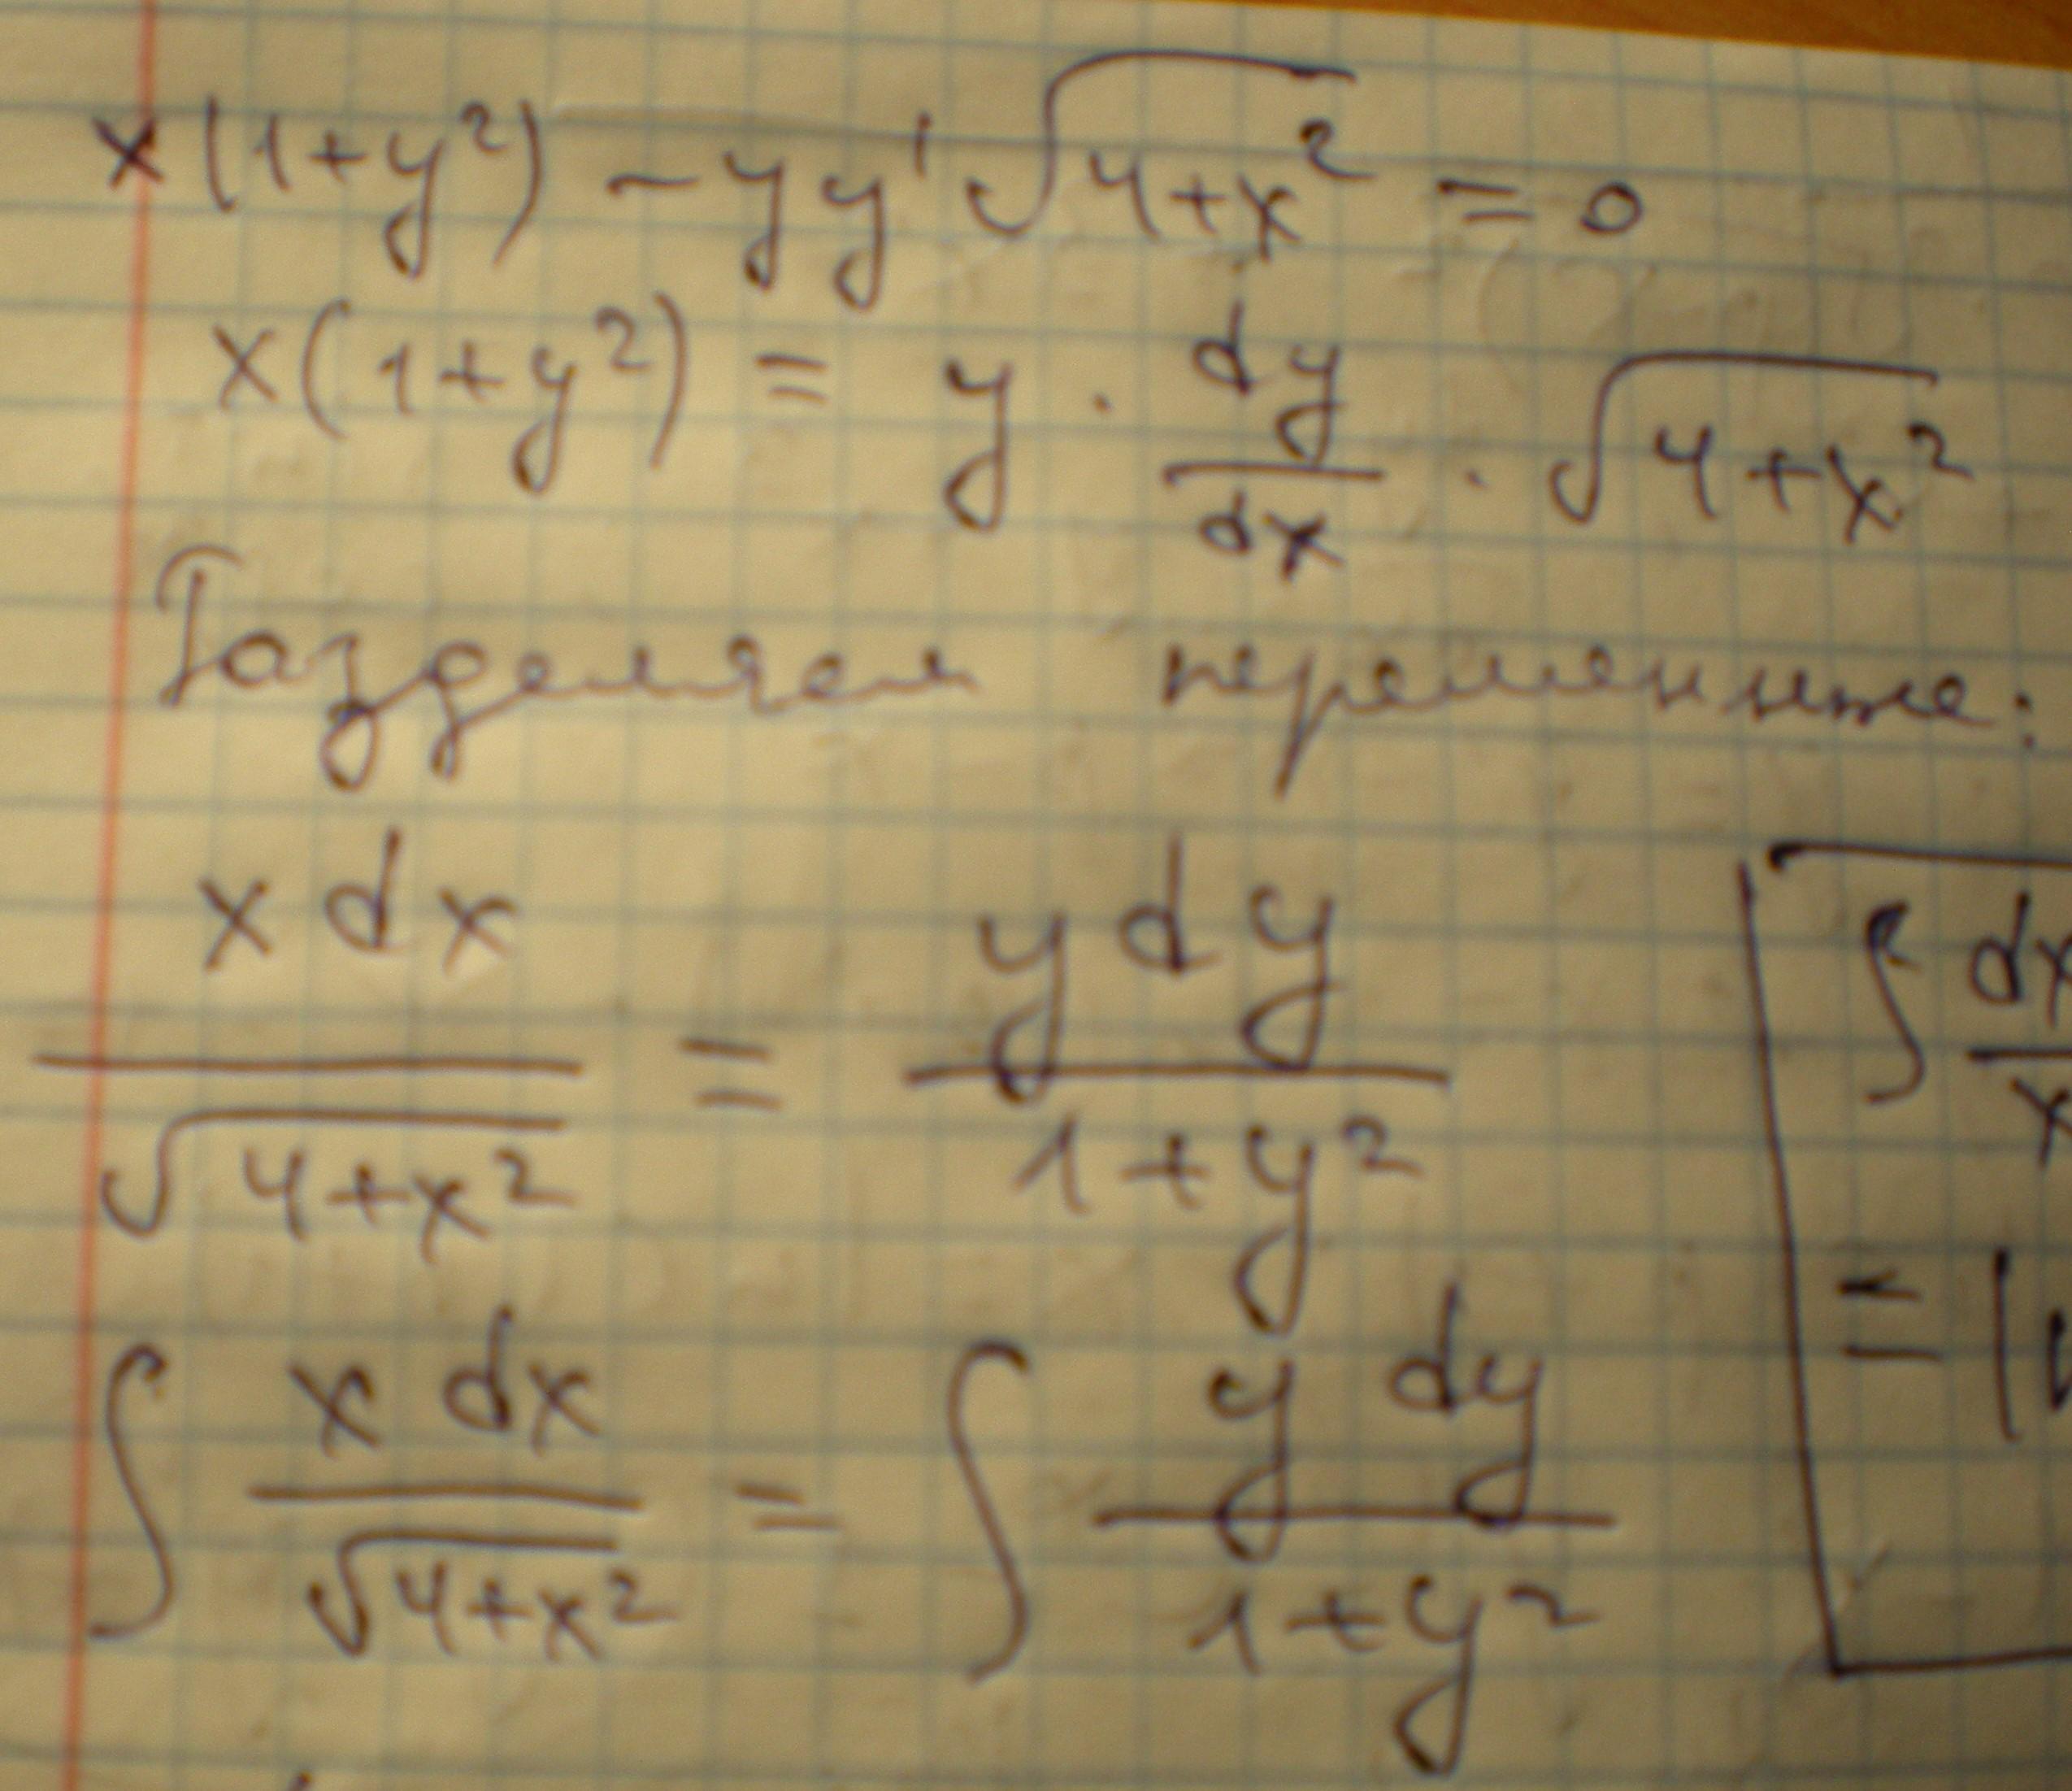 x(1+y²) - yy'√(4+x²) = 0
x(1+y²) = y · dy/dx · √(4+x²)
Разделяем переменные:
x dx / √(4+x²) = y dy / (1+y²)
∫ x dx / √(4+x²) = ∫ y dy / (1+y²)
∫ dx / x
=